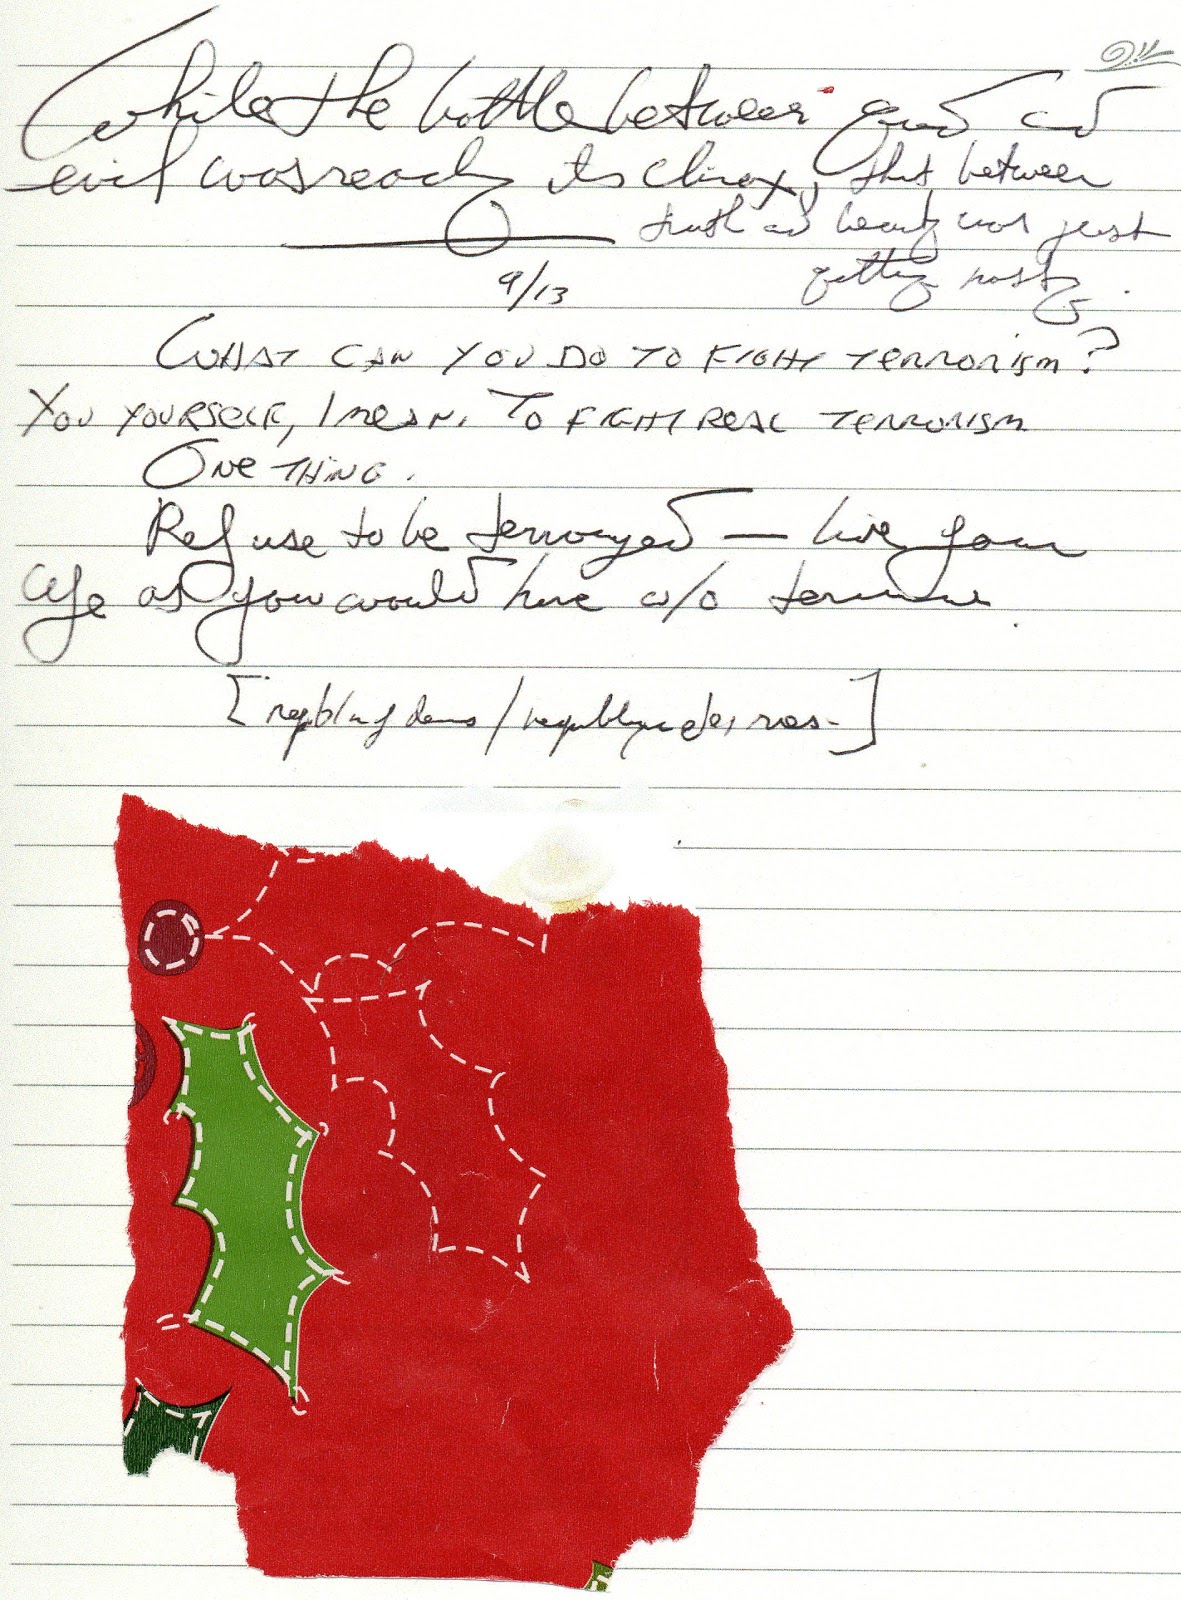 While the battle between good and
evil was reachg its climax, that between
truth and beauty was just
getting nasty.
9/13
WHAT CAN YOU DO TO FIGHT TERRORISM?
YOU YOURSELF, I MEAN. TO FIGHT REAL TERRORISM
ONE THING.
Refuse to be terrorized — live your
life as you would have w/o terrorism.